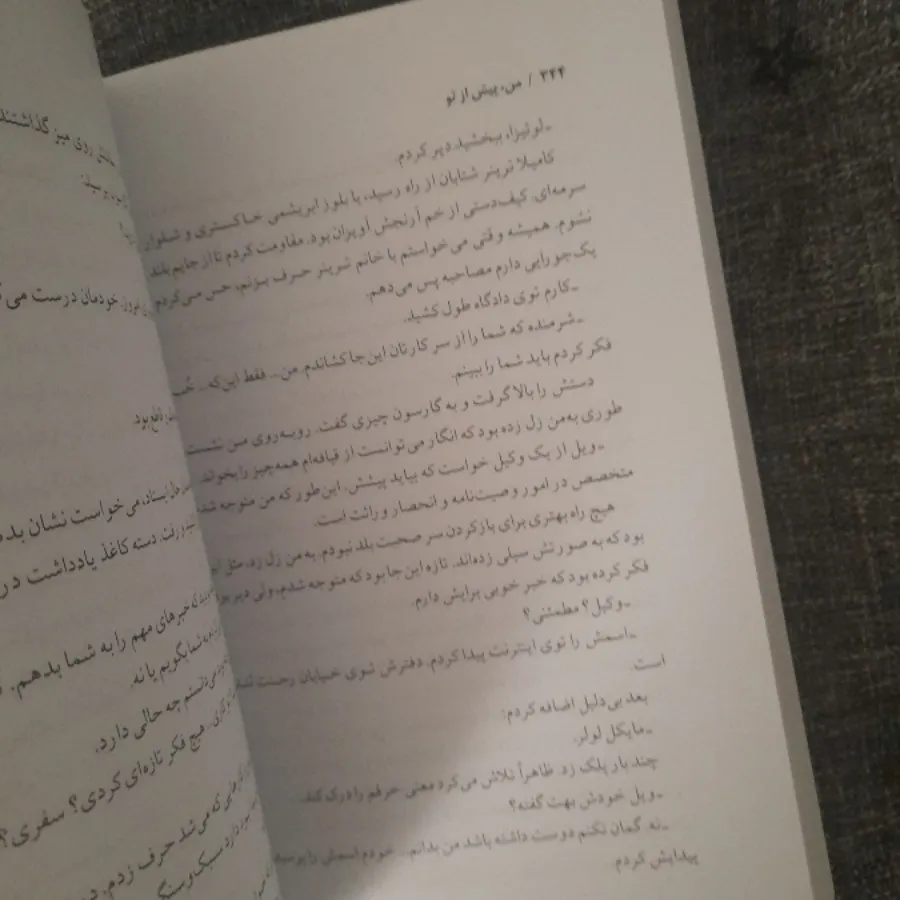 ۳۴۴ / من، پیش از تو
ـ لوئیزا، ببخشید دیر کردم.
کامیلا ترینر شتابان از راه رسید، با بلوز ابریشمی خاکستری و شلوار
سرمه‌ای. کیف‌دستی از خم آرنجش آویزان بود. مقاومت کردم تا از جایم بلند
نشوم. همیشه وقتی می‌خواستم با خانم ترینر حرف بزنم، حس می‌کردم
یک‌جورایی دارم مصاحبه پس می‌دهم.
ـ کارم توی دادگاه طول کشید.
ـ شرمنده که شما را از سر کارتان این‌جا کشاندم. من... فقط این‌که... خُب
فکر کردم باید شما را ببینم.
دستش را بالا گرفت و به گارسون چیزی گفت. روبه‌روی من نشست
طوری به‌من زل زده بود که انگار می‌توانست از قیافه‌ام همه‌چیز را بخواند.
ـ ویل از یک وکیل خواست که بیاید پیشش. این‌طور که من متوجه شدم
متخصص در امور وصیت‌نامه و انحصار وراثت است.
هیچ راه بهتری برای بازکردن سر صحبت بلد نبودم. به من زل زد، مثل این
بود که به صورتش سیلی زده‌اند. تازه این‌جا بود که متوجه شدم، ولی دیر
فکر کرده بود که خبر خوبی برایش دارم.
ـ وکیل؟ مطمئنی؟
ـ اسمش را توی اینترنت پیدا کردم. دفترش توی خیابان رجنت
است.
بعد بی‌دلیل اضافه کردم:
ـ مایکل لولر.
چند بار پلک زد. ظاهراً تلاش می‌کرد معنی حرفم را درک کند.
ـ ویل خودش بهت گفته؟
ـ نه. گمان نکنم دوست داشته باشد من بدانم... خودم اسمش را
پیدایش کردم.
روی میز گذاشتند
خودمان درست
نافع بود.
می‌خواست نشان
دسته کاغذ یادداشت در
که خبرهای مهم را به شما بدهم.
به شما بگویم یا نه.
چه حالی دارد.
هیچ فکر تازه‌ای کردی؟ سفری؟
که می‌شد حرف زدم.
دارد سبک و سنگ